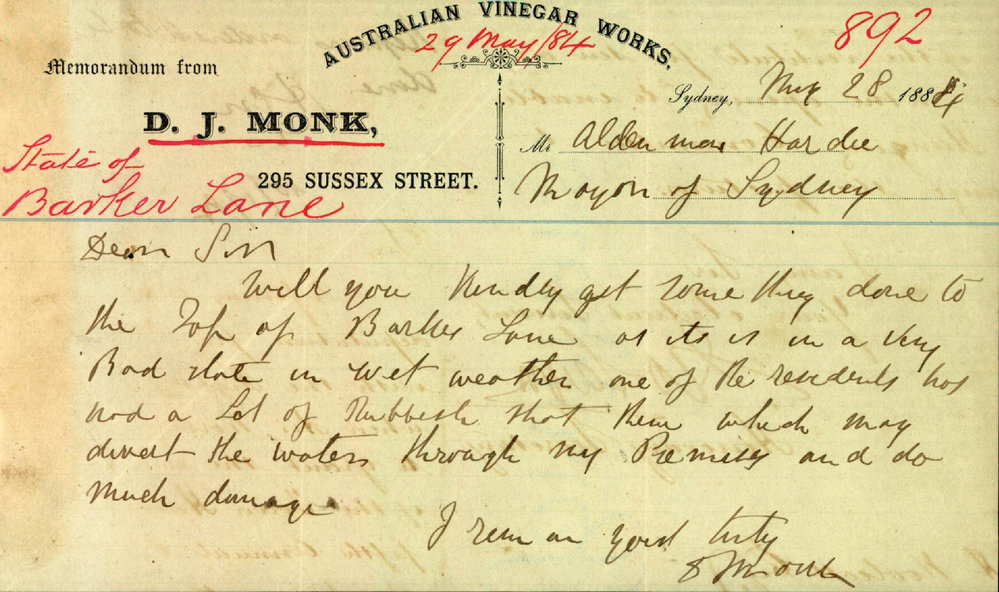 AUSTRALIAN VINEGAR WORKS.
29 May/84
892
Memorandum from
D. J. MONK,
295 SUSSEX STREET.
State of
Barker Lane
Sydney, May 28 1884
Mr Alderman Hardie
Mayor of Sydney
Dear Sir
Will you Kindly get some thing done to
the Top of Barker Lane as its is in a very
Bad state in wet weather one of the residents has
had a Lot of Rubbish shot there which may
divert the waters through my Premises and do
much damage
I remain yours truly
Monk